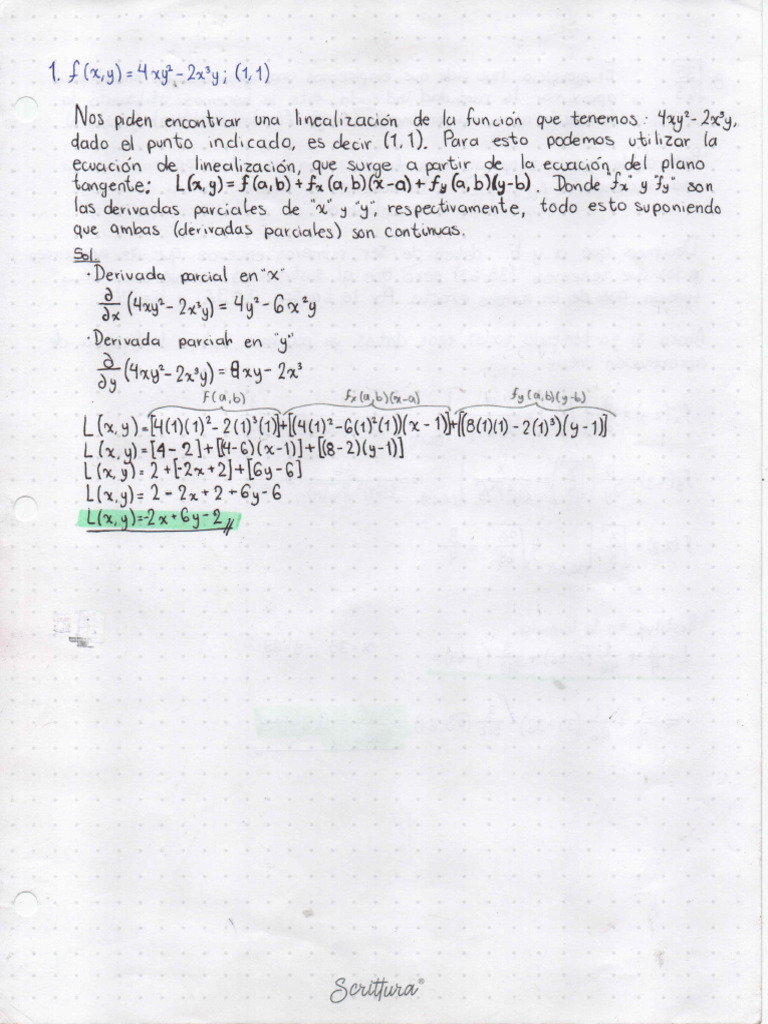 1. f(x,y) = 4xy² - 2x³y ; (1,1)
Nos piden encontrar una linealización de la función que tenemos: 4xy² - 2x³y,
dado el punto indicado, es decir (1,1). Para esto podemos utilizar la
ecuación de linealización, que surge a partir de la ecuación del plano
tangente; L(x,y) = f(a,b) + fx(a,b)(x-a) + fy(a,b)(y-b). Donde "fx" y "fy" son
las derivadas parciales de "x" y "y", respectivamente, todo esto suponiendo
que ambas (derivadas parciales) son continuas.
Sol.
· Derivada parcial en "x"
∂/∂x (4xy² - 2x³y) = 4y² - 6x²y
· Derivada parcial en "y"
∂/∂y (4xy² - 2x³y) = 8xy - 2x³
f(a,b) fx(a,b)(x-a) fy(a,b)(y-b)
L(x,y) = [4(1)(1)² - 2(1)³(1)] + [(4(1)² - 6(1)²(1))(x-1)] + [(8(1)(1) - 2(1)³)(y-1)]
L(x,y) = [4-2] + [(4-6)(x-1)] + [(8-2)(y-1)]
L(x,y) = 2 + [-2x+2] + [6y-6]
L(x,y) = 2 - 2x + 2 + 6y - 6
L(x,y) = -2x + 6y - 2 //
Scrittura®